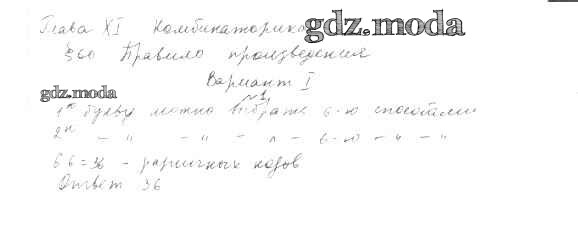 Глава XI Комбинаторика gdz.moda
§60 Правило произведения
Вариант I
gdz.moda №1
1ю букву можно выбрать 6-ю способами
2ю – " – " – " – 6-ю – " – "
6·6=36 – различных кодов
Ответ 36